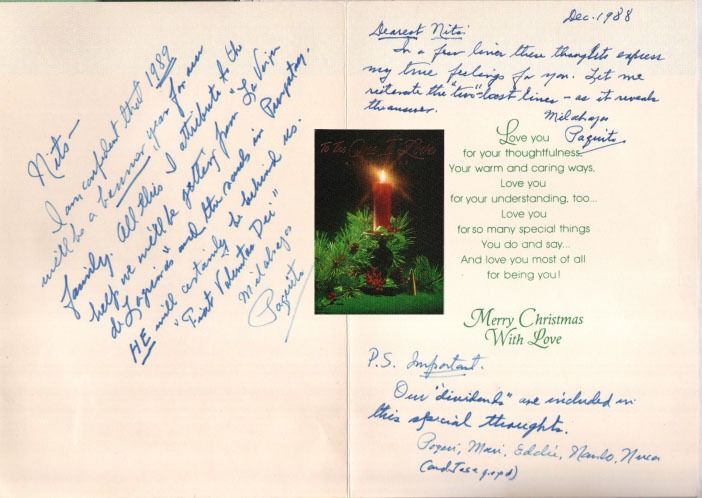 Nits—
I am confident that 1989
will be a banner year for our
family. All this I attribute to the
help we will be getting from "La Virgen
de Lagrimas" and the souls in Purgatory.
HE will certainly be behind us.
"Fiat Voluntas Dei"
Mil abrazos
Paquito
To the One I Love
Dec. 1988
Dearest Nits:
In a few lines these thoughts express
my true feelings for you. Let me
reiterate the "two" last lines – as it reveals
the answer.
Mil abrazos
Paquito
Love you
for your thoughtfulness,
Your warm and caring ways,
Love you
for your understanding, too...
Love you
for so many special things
You do and say...
And love you most of all
for being you!
Merry Christmas
With Love
P.S. Important.
Our "dividends" are included in
this special thoughts.
Mari, Eddie, Nando,